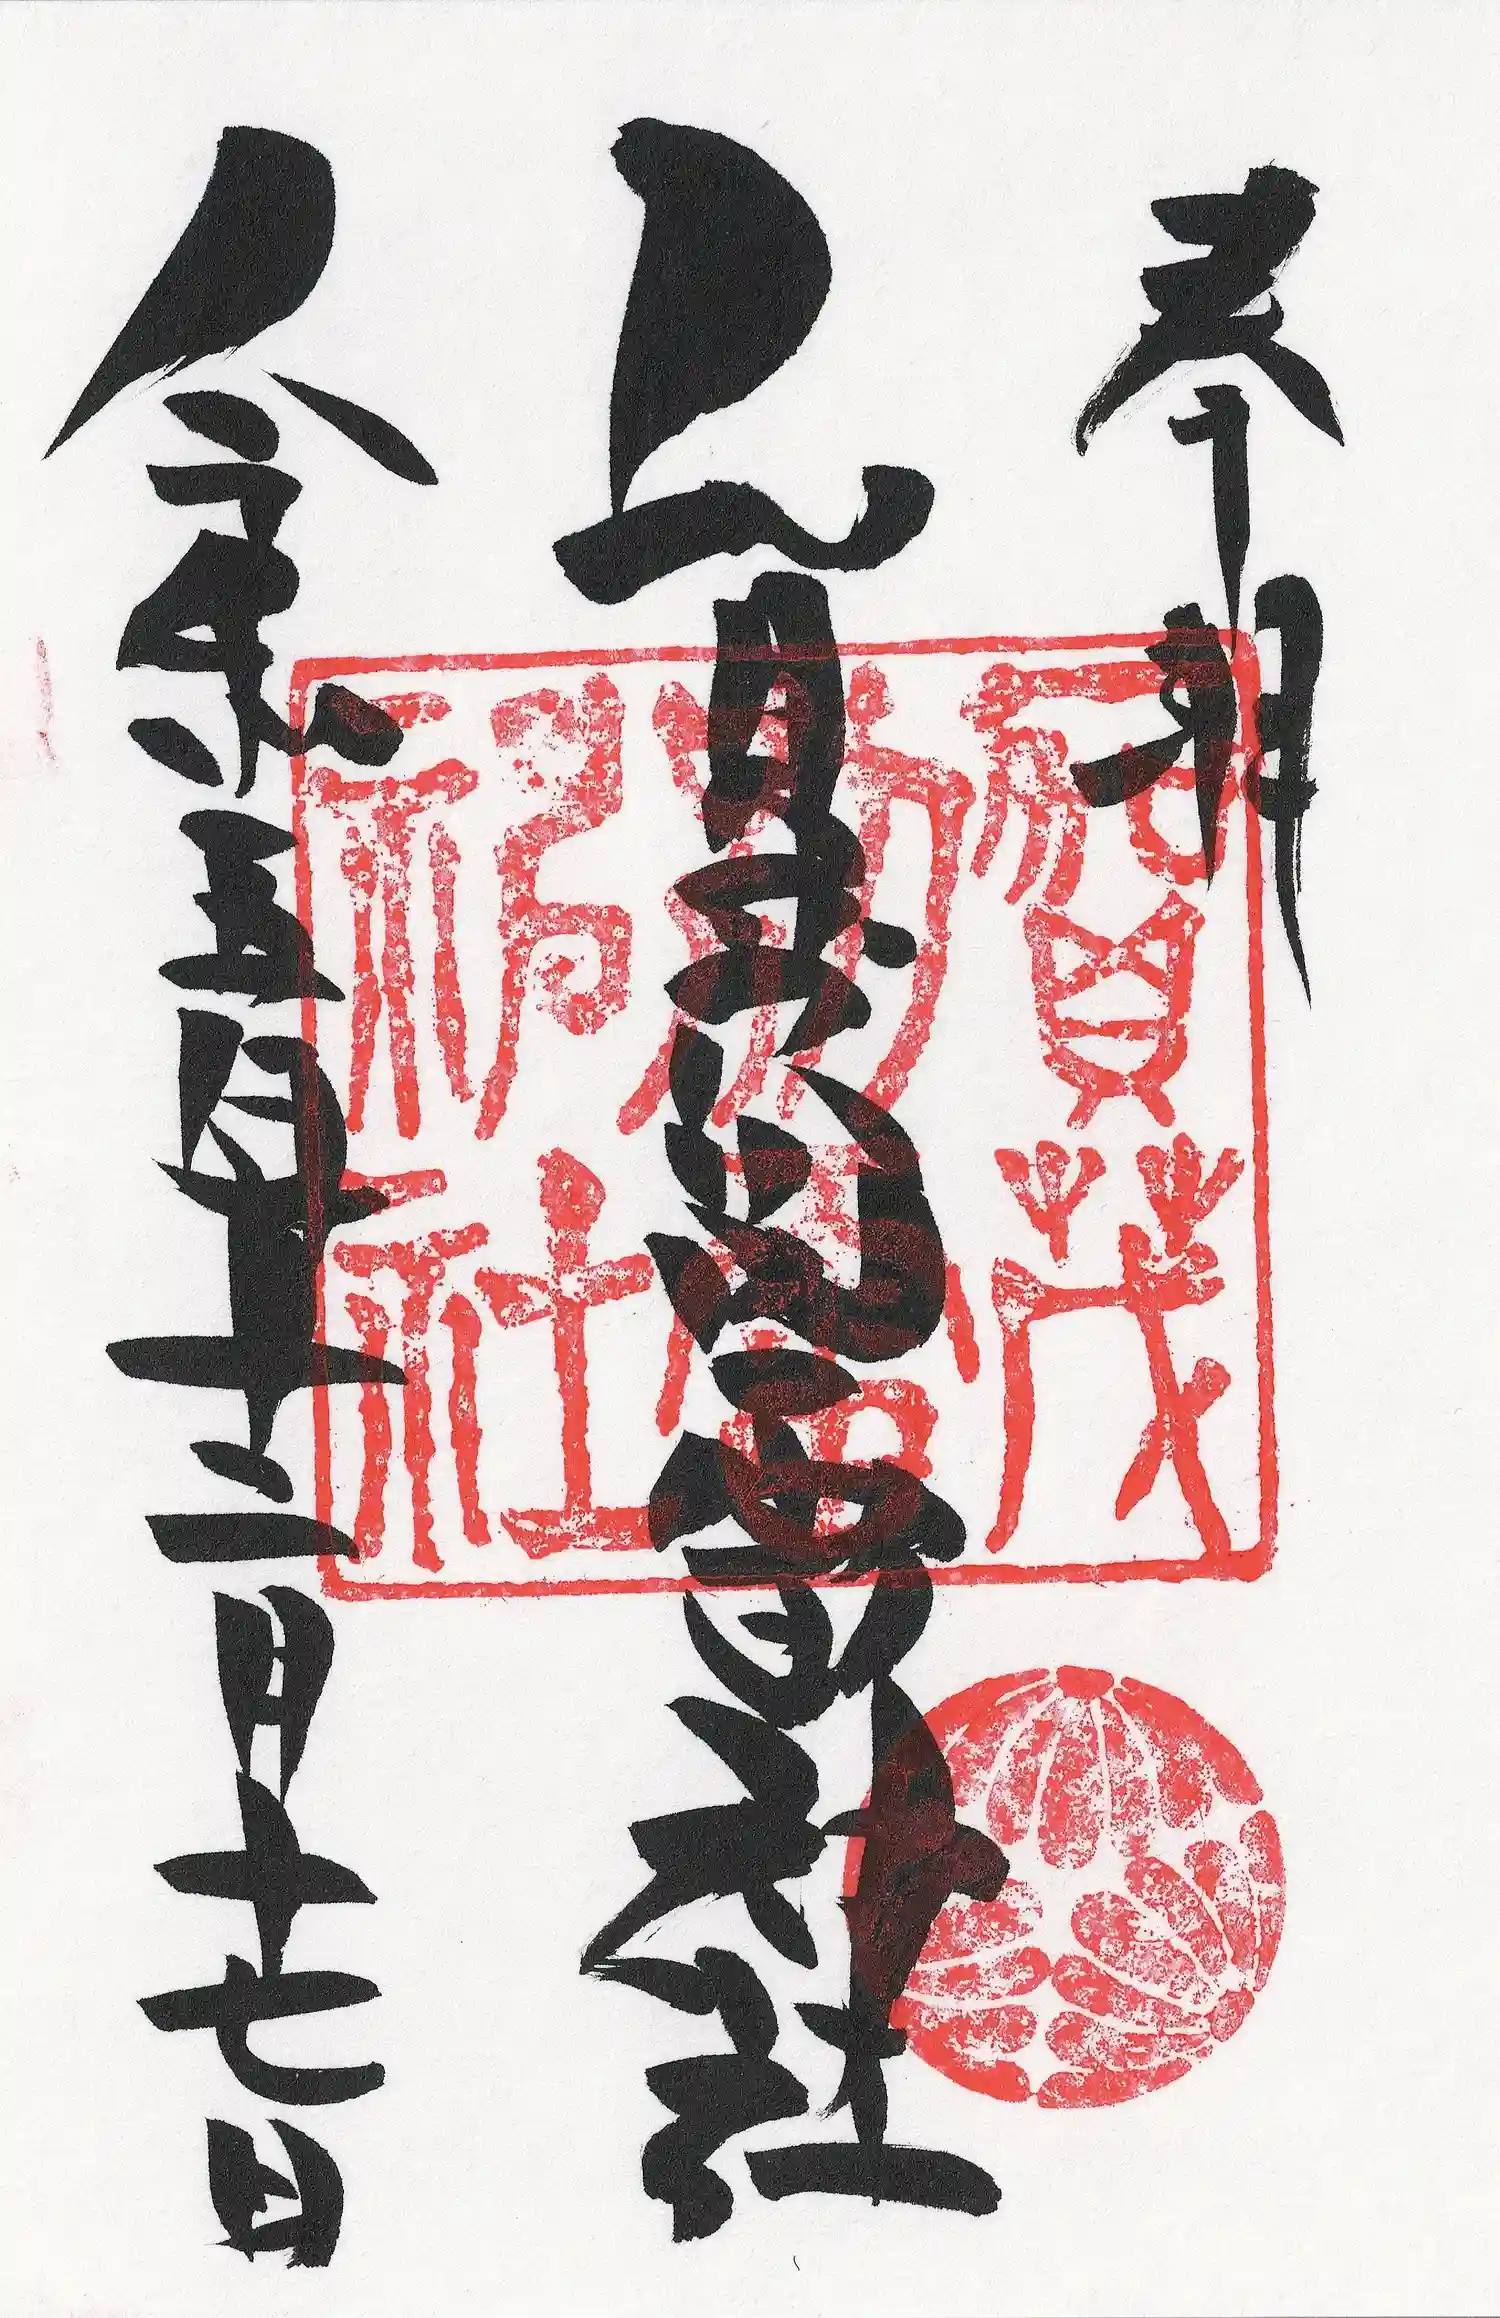 奉拝
賀茂別雷神社
令和五年十二月十七日
賀茂
別雷
神社